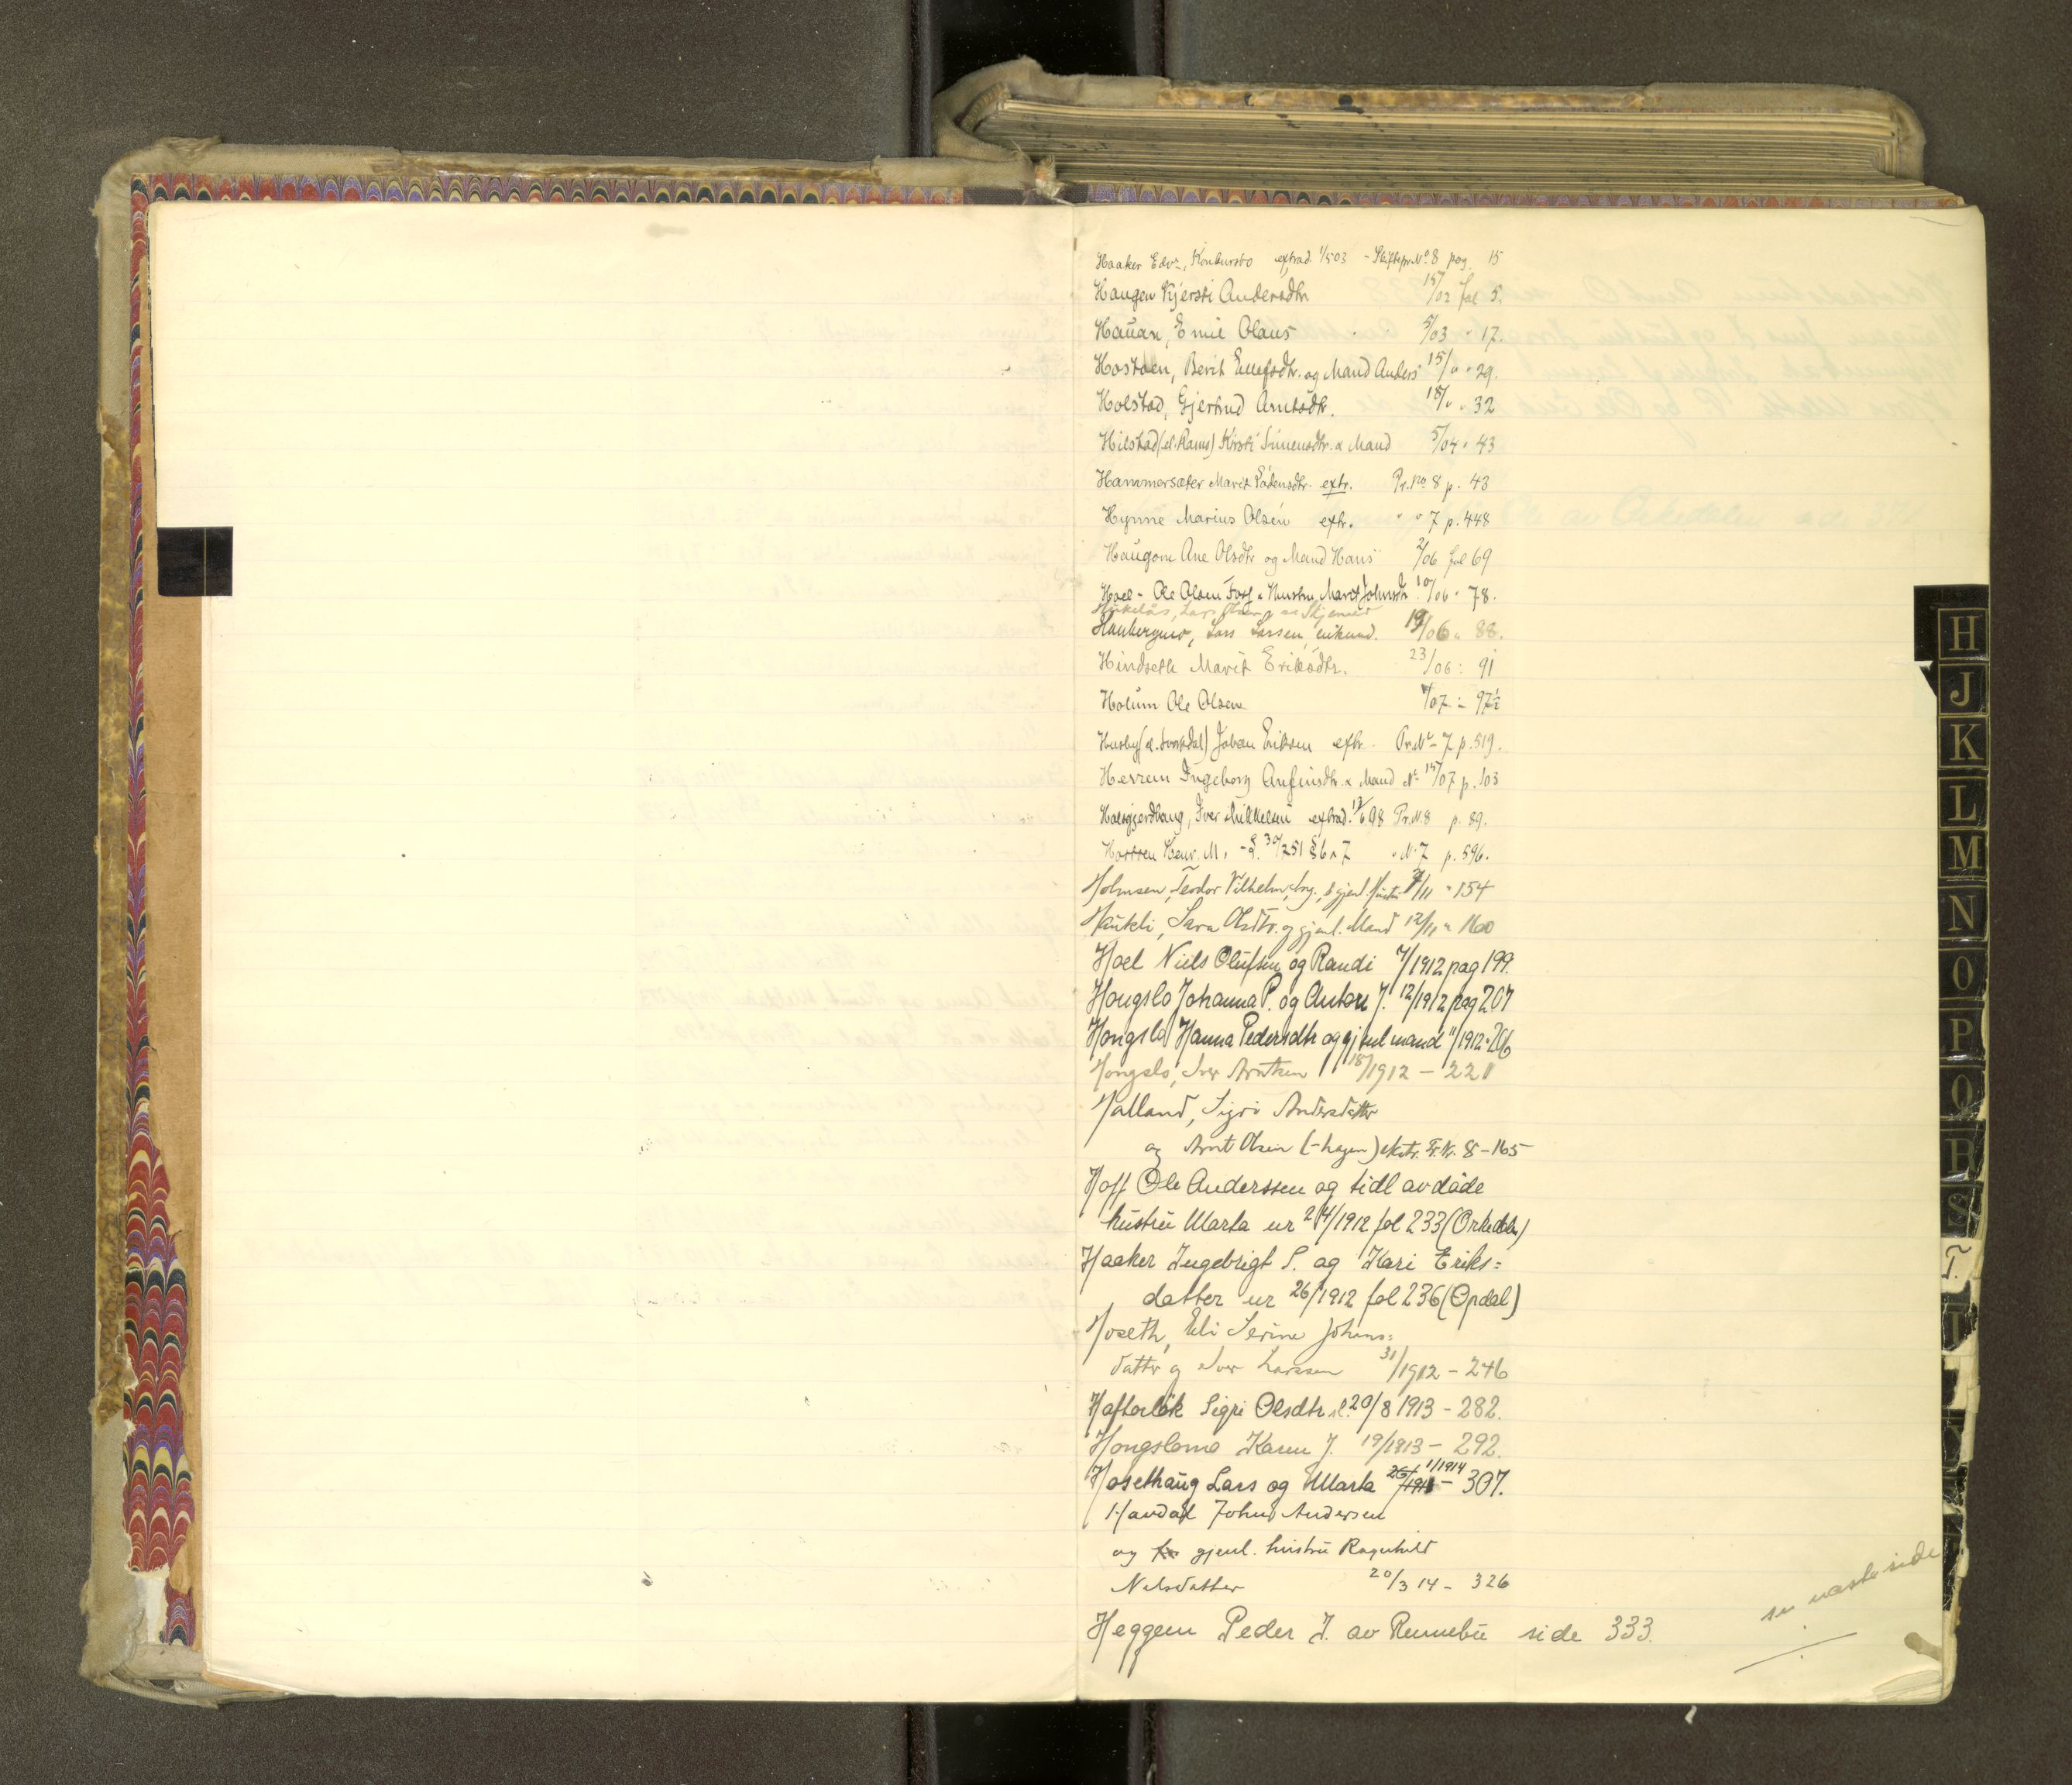 Haaker Edv., Konkursbo extrad. 1/503 - Skiftepr. No 8 pag. 15
Haugen Kjersti Andersdtr 15/02 fol 5.
Hauan, Emil Olaus 5/03 " 17.
Hostoen, Berit Ellefsdtr. og Mand Anders 15/" " 29.
Holstad, Gjertrud Arntsdtr. 18/" " 32
Hilstad (el. Rams) Kirsti Simensdtr. & Mand 5/04 " 43
Hammersæter Marit extr. Pr. No 8 p. 43
Hynne Marius Olsen extr. " " 7 p. 448
Haugom Ane Olsdtr og Mand Hans 2/06 fol 69
Hoel - Ole Olsen Foss & Hustru Marit Johnsdr 10/06 " 78.
Lars Olsen
Haubergmo, Lars Larsen, enkemd. 19/06 " 88.
Hindseth Marit Eriksdtr. 23/06 : 91
Holum Ole Olsen /07 - 97½
Husby (el. Svorkdal) Johan Eriksen extr. Pr. No - 7 p. 519.
Herrem Ingeborg Anfinsdtr. & Mand No 15/07 p. 103
Holsgjerdhaug, Iver Mikkelsen extrad. 12/6 08 Pr. N. 8 p. 89.
Henr. M. - § 30/251 § 6 & 7 " N. 7 p. 596.
Holmsen, Teodor Vilhelm, & gjenl. Hustru 7/11 " 154
Haukli, Sara Olsdtr. og gjenl. Mand 12/11 " 160
Hoel Niels Olufsen og Randi 7/1912 pag 199.
Hongslo Johanna P. og Anton J. 12/1912 pag 207
Hongslo Hanna Pedersdtr og gjenl mand 11/1912 " 206
Hongslo, Iver Arntsen 18/1912 - 221
Halland, Sigri Andersdatter
og Arnt Olsen (-hagen) ekstr. Pr. Nr. 8 - 165
Hoff Ole Anderssen og tidl avdøde
hustru Marta nr 24/1912 fol 233 (Orkedalen)
Haaker Ingebrigt S. og Kari Eriks=
datter nr 26/1912 fol 236 (Opdal)
Hoseth, Eli Serine Johans=
datter og Iver Larssen 31/1912 - 246
Hafterløk Sigri Olsdtr sl. 20/8 1913 - 282.
Hongslomo Karen J. 19/1913 - 292.
Hosethaug Lars og Marta 1/1914 - 307.
Havdal John Andersen
og gjenl. hustru Ragnhild
Nilsdatter 20/3 14 - 326
Heggem Peder J. av Rennebu side 333.
se næste side
H
J
K
L
M
N
O
P
Q
R
S
T.